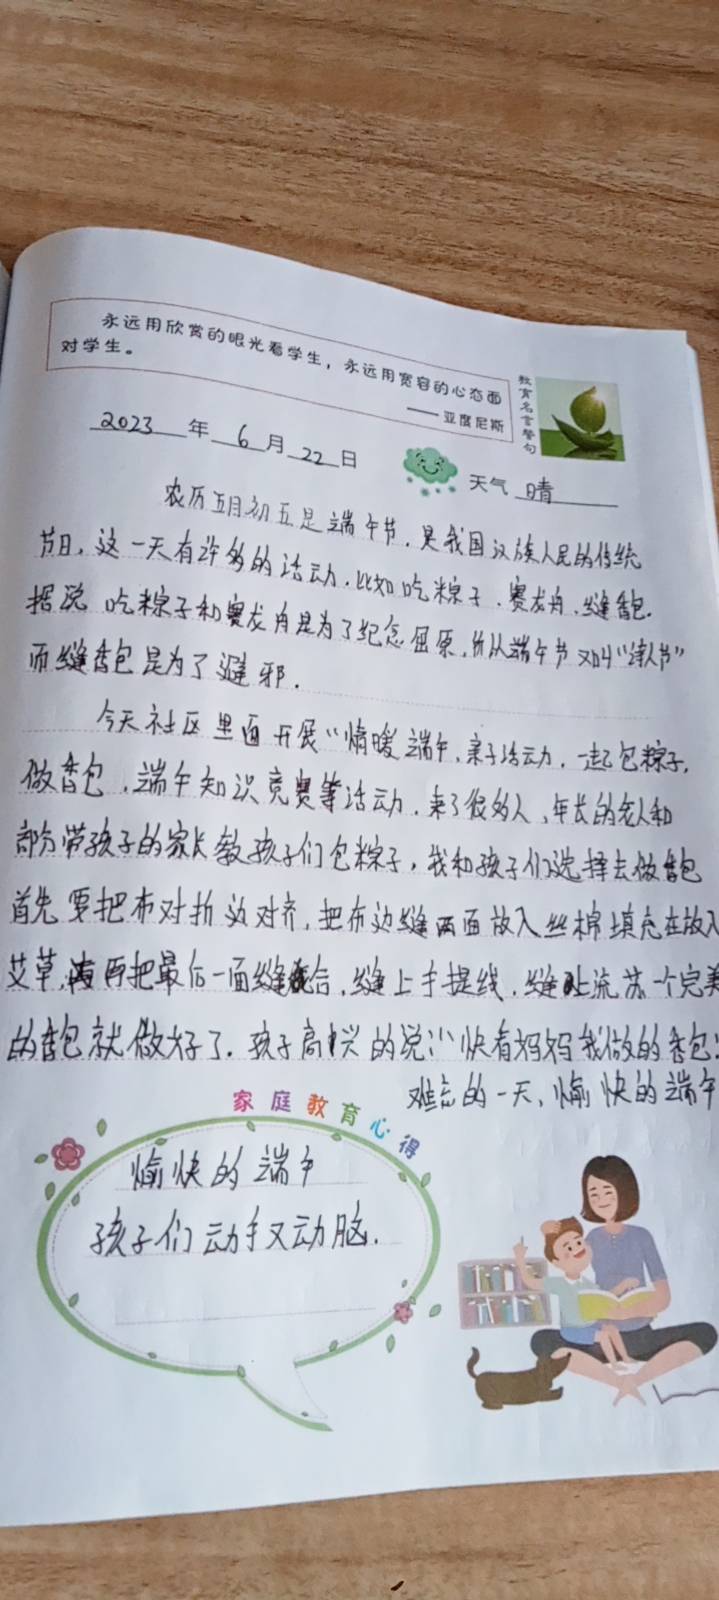 永远用欣赏的眼光看学生，永远用宽容的心态面
对学生。
—— 亚度尼斯
教育名言警句
2023 年 6 月 22 日
天气 晴
农历五月初五是端午节，是我国汉族人民的传统
节日，这一天有许多的活动，比如吃粽子、赛龙舟、缝香包.
据说 吃粽子和赛龙舟是为了纪念屈原，所以端午节又叫“诗人节”
而缝香包是为了避邪.
今天社区里面开展“情暖端午、亲子活动，一起包粽子，
做香包、端午知识竞赛等活动，来了很多人、年长的老人和
部分带孩子的家长教孩子们包粽子，我和孩子们选择去做香包
首先要把布对折边对齐，把布边缝两面放入丝棉填充在放入
艾草，再把最后一面缝合，缝上手提线，缝上流苏一个完美
的香包就做好了. 孩子高兴的说：“快看妈妈我做的香包！
难忘的一天、愉快的端午
家庭教育心得
愉快的端午
孩子们动手又动脑.